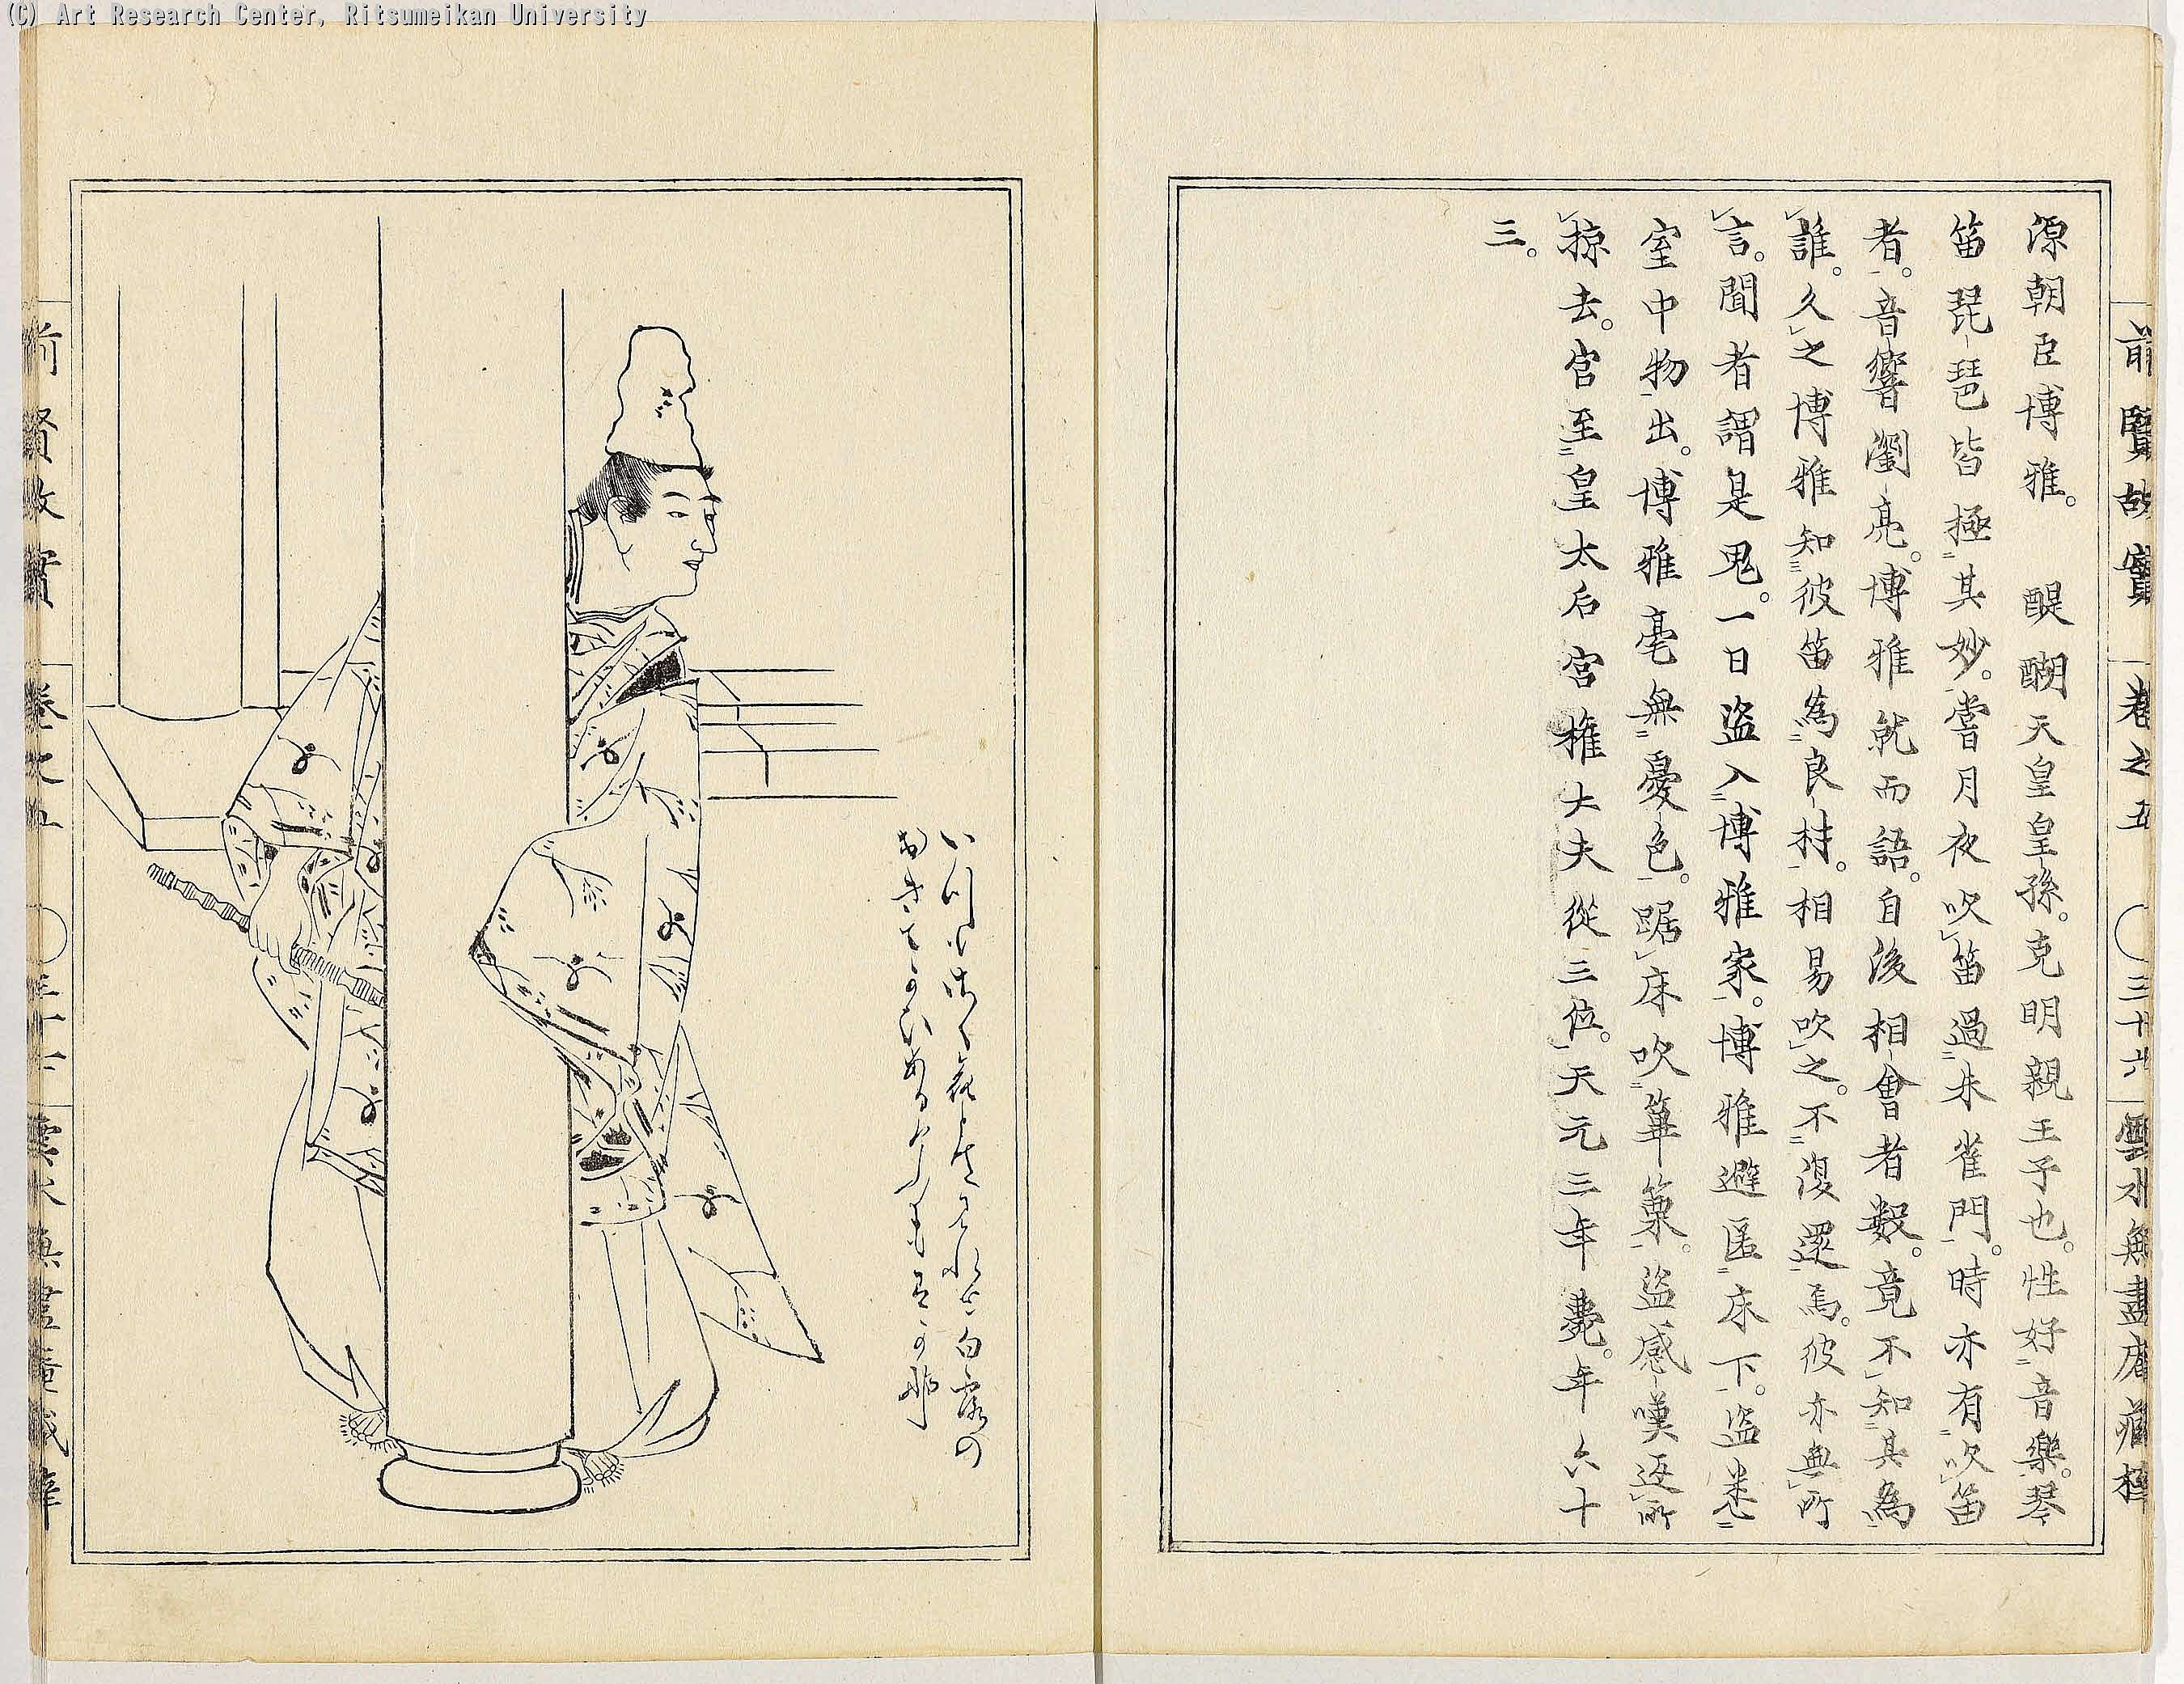 (C) Art Research Center, Ritsumeikan University
前賢故實 卷之五 三十六 雲水無盡庵藏梓
源朝臣博雅。 醍醐天皇皇孫。克明親王子也。性好音樂。琴
笛琵琶皆極其妙。嘗月夜吹笛過朱雀門。時亦有吹笛
者。音響瀏亮。博雅就而語。自後相會者數。竟不知其為
誰。久之博雅知彼笛為良材。相易吹之。不復還焉。彼亦無所
言。聞者謂是鬼。一日盜入博雅家。博雅避匿床下。盜卷
室中物出。博雅毫無憂色。踞床吹篳篥。盜感嘆返所
掠去。官至皇太后宮権大夫從三位。天元三年薨。年六十
三。
白露の
おきてかひある
前賢故實 卷之五 雲水無盡庵藏梓